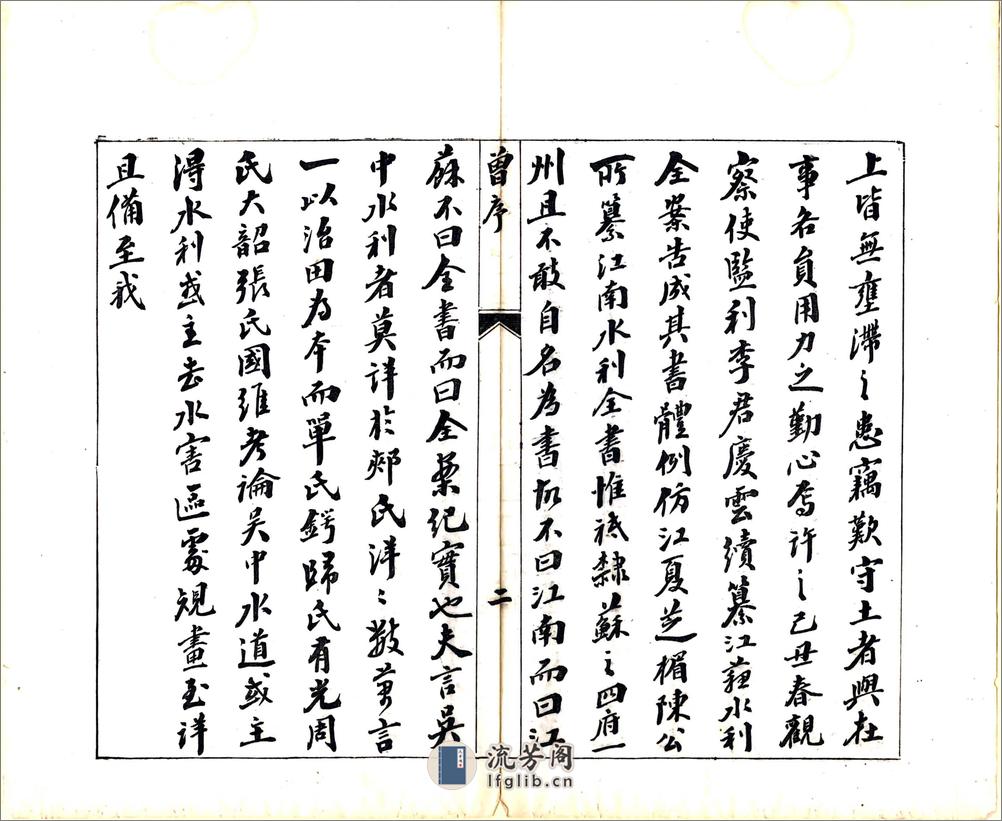 上皆無壅滯之患竊歎守土者與在
事各員用力之勤心焉許之己丑春觀
察使監利李君慶雲續纂江蘇水利
全案告成其書體例仿江夏芝楣陳公
所纂江南水利全書惟祗隸蘇之四府一
州且不敢自名為書故不曰江南而曰江
曾序
二
蘇不曰全書而曰全案紀實也夫言吳
中水利者莫詳於郟氏洋〻數萬言
一以治田為本而單氏鍔歸氏有光周
氏大韶張氏國維考論吳中水道或主
得水利或主去水害區處規畫至詳
且備至我
流芳阁
lfglib.cn